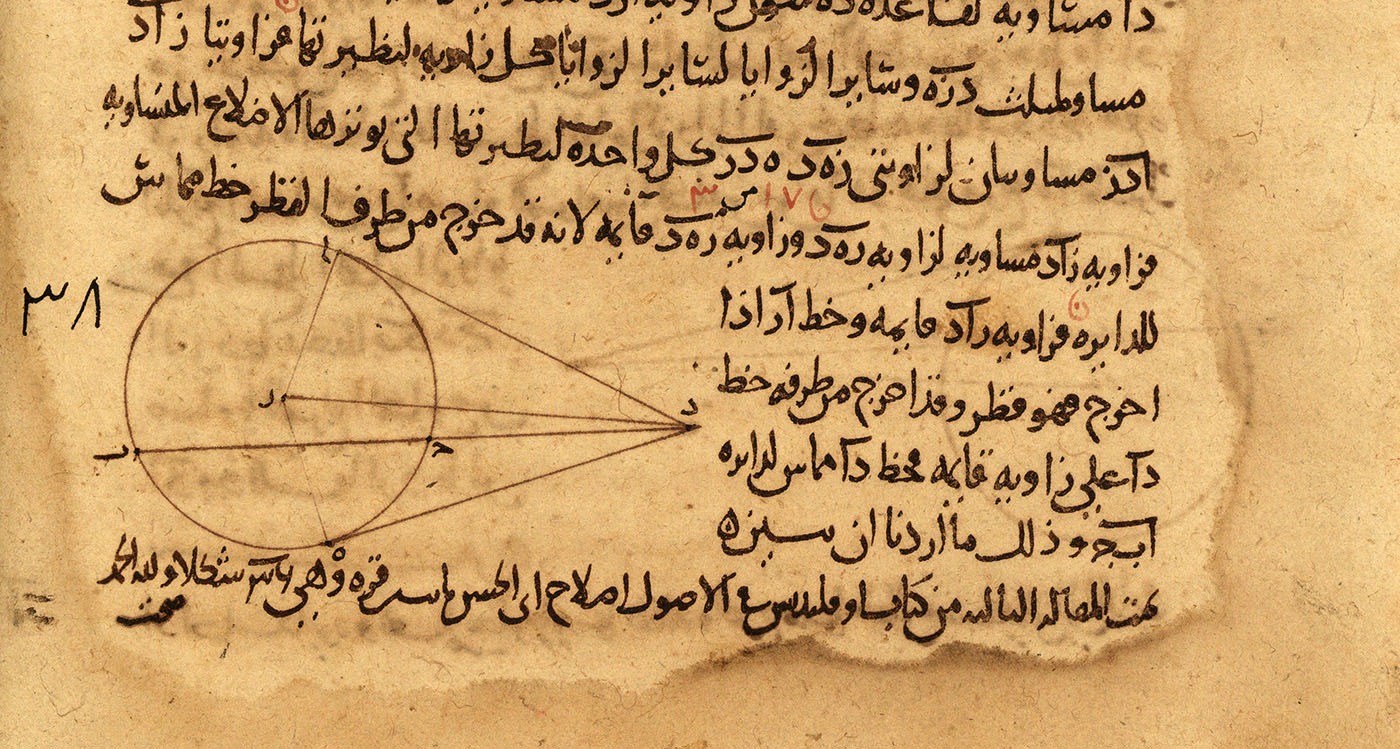 دا مساويه لقاعده ده
مساو لمثلث دزه وسايرا لزوايا لسايرا لزوايا كل زاويه لنظيرتها فزاويتا زاد
ادز مساويتان لزاويتى زه د ه دز كل واحده لنظيرتها التى يوترها الاضلاع المتساويه
فزاويه زاد مساويه لزاويه زه د وزاويه زه د قايمه لانه قد خرج من طرف القطر خط مماس
١٧ من ٣
للدايره فزاويه زاد قايمه وخط از اذا
اخرج فهو قطر وقد اخرج من طرفه خط
دا على زاويه قايمه فخط دا مماس لدايره
ابج وذلك ما اردنا ان نبين ه
تمت المقاله الثالثه من كتاب اوقليدس فى الاصول اصلاح ابى الحسن ثابت بن قره وهى شكلا ولله الحمد
صحت
٣٨
ا
د
ز
ب
ج
ه